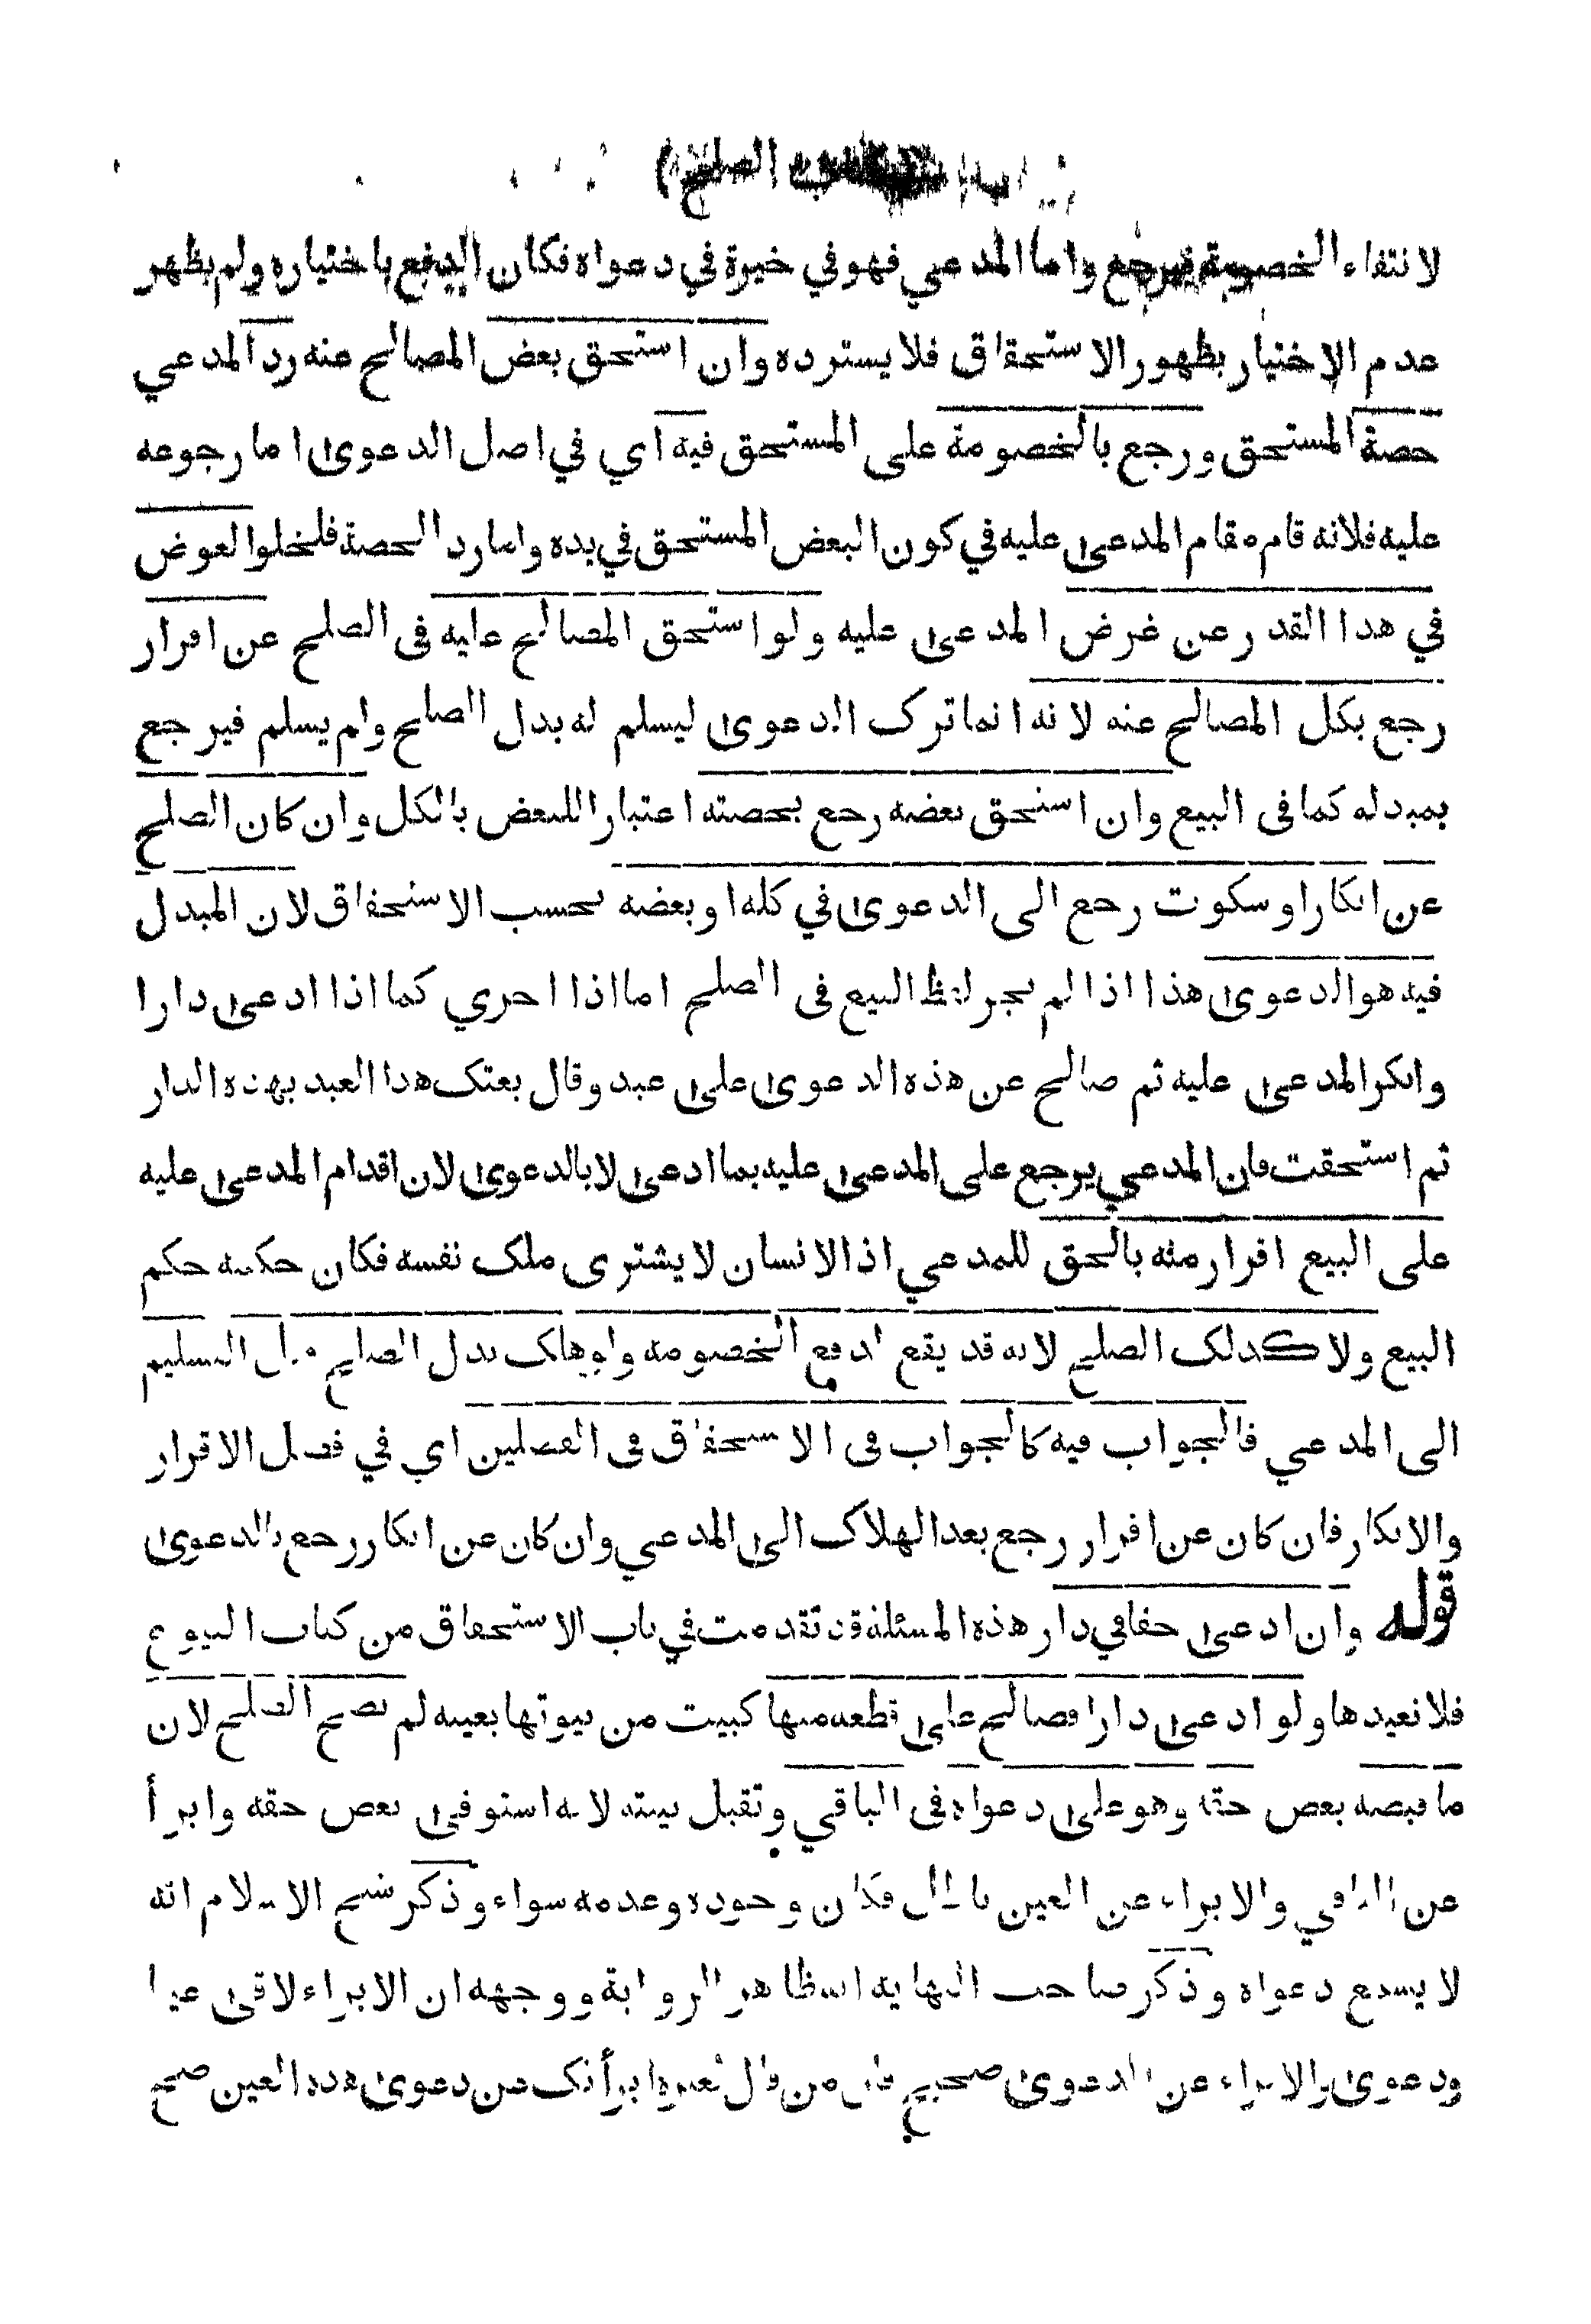 الصلح)
لانتفاء الخصومة فيرجع واما المدعي فهو في خيرة في دعواه فكان الدفع باختياره ولم يظهر
عدم الاختيار بظهور الاستحقاق فلا يسترده وان استحق بعض المصالح عنه رد المدعي
حصة المستحق ورجع بالخصومة على المستحق فيه اي في اصل الدعوى اما رجوعه
عليه فلانه قام مقام المدعى عليه في كون البعض المستحق في يده واما رد الحصة فلخلوالعوض
في هذا القدر عن غرض المدعى عليه ولو استحق المصالح عليه فى الصلح عن اقرار
رجع بكل المصالح عنه لانه انما ترك الدعوى ليسلم له بدل الصلح ولم يسلم فيرجع
بمبدله كما فى البيع وان استحق بعضه رجع بحصته اعتبارا للبعض بالكل وان كان الصلح
عن انكار او سكوت رجع الى الدعوى في كله او بعضه بحسب الاستحقاق لان المبدل
فيه هو الدعوى هذا اذا لم يجر لفظ البيع فى الصلح اما اذا اجري كما اذا ادعى دارا
وانكر المدعى عليه ثم صالح عن هذه الدعوى على عبد وقال بعتك هذا العبد بهذه الدار
ثم استحقت فان المدعي يرجع على المدعى عليه بما ادعى لا بالدعوى لان اقدام المدعى عليه
على البيع اقرار منه بالحق للمدعي اذ الانسان لا يشترى ملك نفسه فكان حكمه حكم
البيع ولا كذلك الصلح لانه قد يقع لدفع الخصومه ولو هلك بدل الصلح قبل التسليم
الى المدعي فالجواب فيه كالجواب فى الاستحقاق فى الفصلين اي في فصل الاقرار
والانكار فان كان عن اقرار رجع بعد الهلاك الى المدعي وان كان عن انكار رجع بالدعوى
قوله وان ادعى حقا في دار هذه المسئلة قد تقدمت في باب الاستحقاق من كتاب البيوع
فلا نعيدها ولو ادعى دارا فصالح على قطعه منها كبيت من بيوتها بعينه لم يصح الصلح لان
ما قبضه بعض حقه وهو على دعواه فى الباقي وتقبل بينته لانه استوفى بعض حقه وابرأ
عن الباقي والابراء عن العين باطل فكان وجوده وعدمه سواء وذكر شيخ الاسلام انه
لا يسمع دعواه وذكر صاحب النهايه انه ظاهر الرواية ووجهه ان الابراء لاقى عينا
ودعوى والابراء عن الدعوى صحيح فان من قال لغيره ابرأتك عن دعوى هذه العين صح